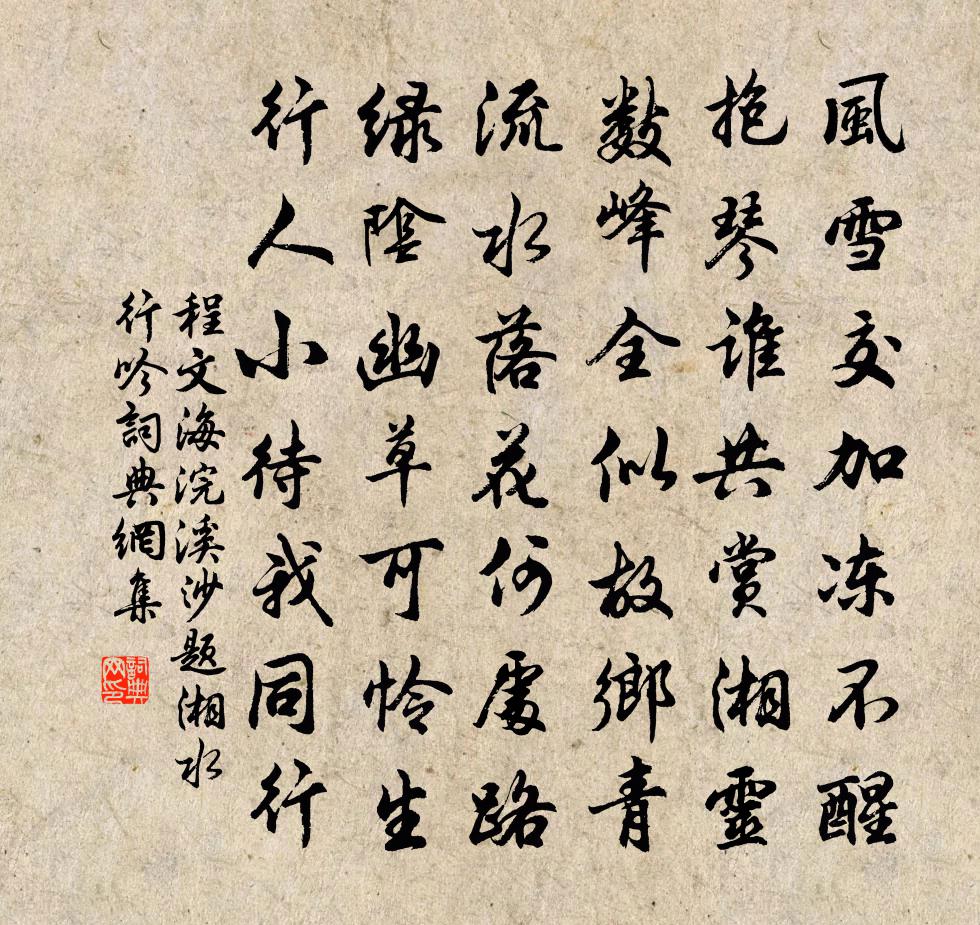 風雪交加冻不醒
抱琴誰共赏湘靈
數峰全似故鄉青
流水落花何處路
緑陰幽草可怜生
行人小待我同行
程文海浣溪沙题湘水
行吟詞典網集
詞典
网印